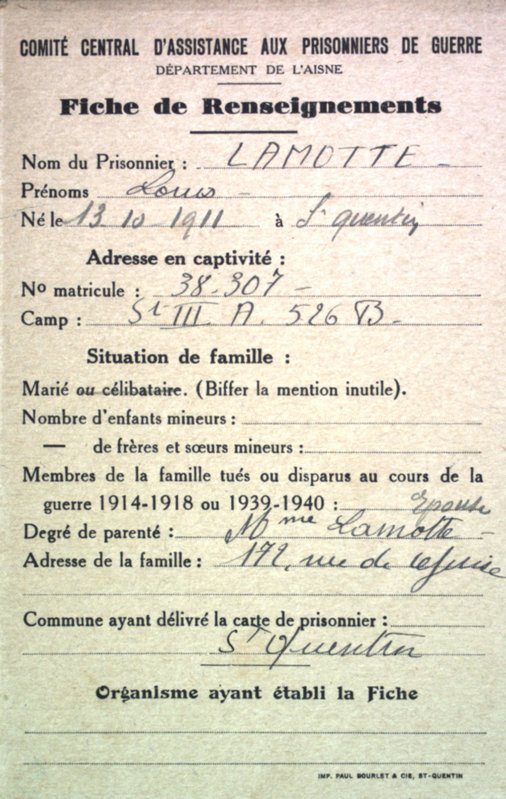 COMITÉ CENTRAL D'ASSISTANCE AUX PRISONNIERS DE GUERRE
DÉPARTEMENT DE L'AISNE
Fiche de Renseignements
Nom du Prisonnier : LAMOTTE -
Prénoms Louis -
Né le 13 10 1911 à St quentin
Adresse en captivité :
No matricule : 38-307 -
Camp : St III A. 526 B -
Situation de famille :
Marié ou célibataire. (Biffer la mention inutile).
Nombre d'enfants mineurs :
— de frères et sœurs mineurs :
Membres de la famille tués ou disparus au cours de la
guerre 1914-1918 ou 1939-1940 : Epouse
Degré de parenté : Mme Lamotte -
Adresse de la famille : 172, rue de Guise
Commune ayant délivré la carte de prisonnier :
St Quentin
Organisme ayant établi la Fiche
IMP. PAUL BOURLET & CIE, ST-QUENTIN